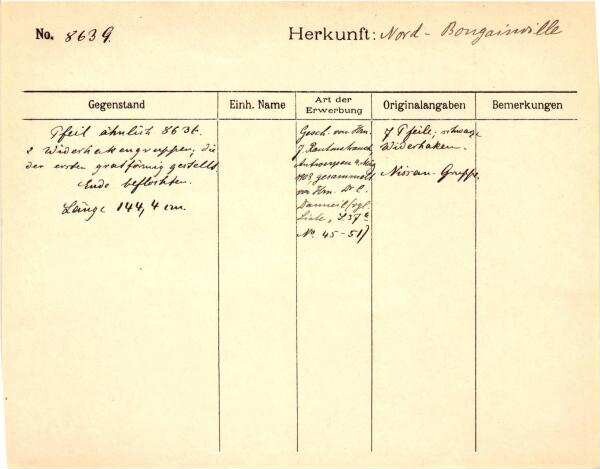 No. 8639. Herkunft: Nord-Bougainville
Gegenstand Einh. Name Art der Erwerbung Originalangaben Bemerkungen
Pfeil ähnlich 8636.
2 Widerhakengruppen, die
der ersten gratförmig gestellt
Ende beflochten.
Länge 144,4 cm.
Gesch. von Hrn.
J. Rautenstrauch
Antwerpen
1909 gesammelt
von Hrn. Dr. E.
Danneil (vgl.
Liste, S 37a
No. 45-51)
7 Pfeile; schwarze
Widerhaken.
Nissan-Gruppe.